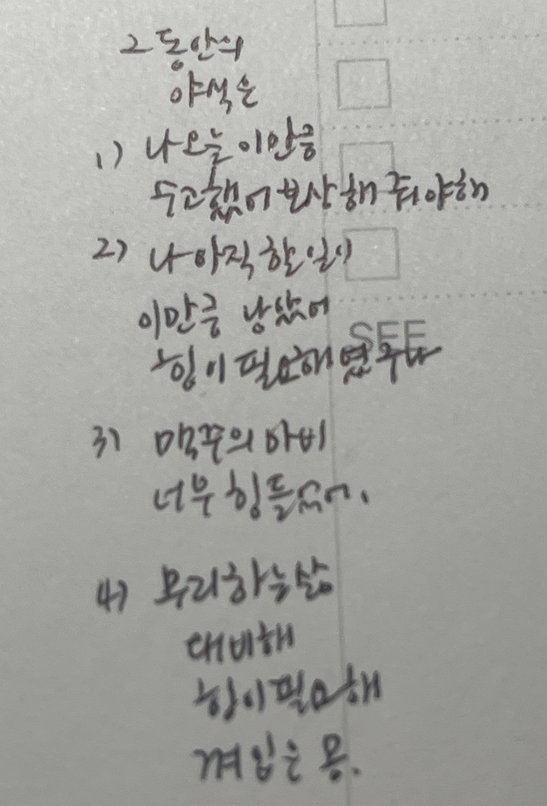 그동안의
야식은
1) 나 오늘 이만큼
수고했어 보상해 줘야해
2) 나 아직 할 일이
이만큼 남았어
SEE
힘이 필요해
3) 맥주의 아비
너무 힘들었어.
4) 무리하는 삶
대비해
힘이 필요해
껴입은 몸.